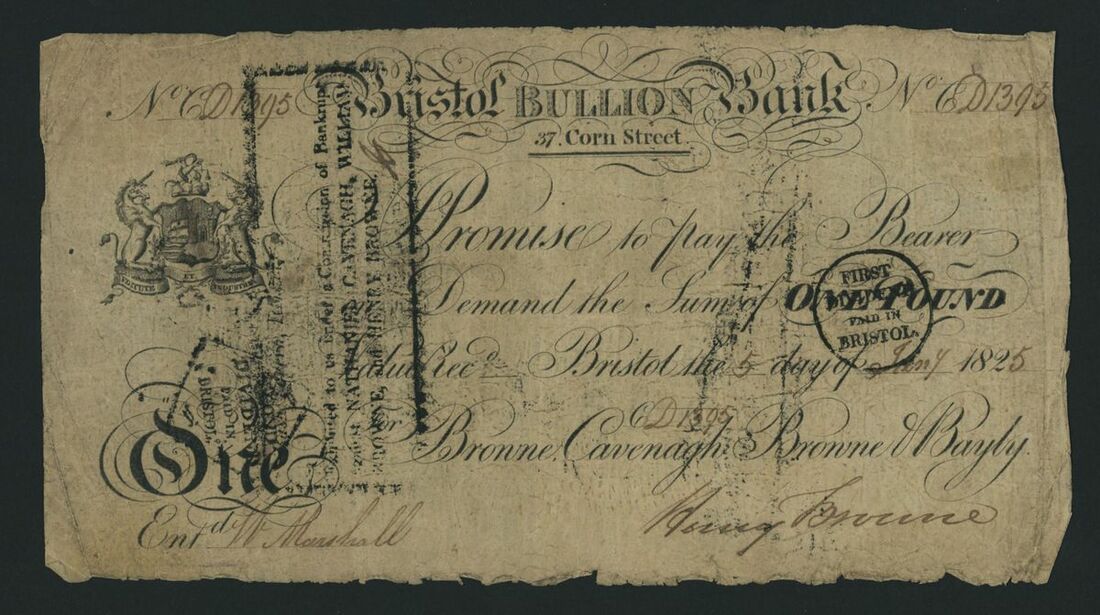 No D1395 Bristol BULLION Bank No D1395
37. Corn Street
I Promise to pay the Bearer
Demand the Sum of ONE POUND
Value Recd Bristol the 5 day of Jany 1825
D1395
For Browne, Cavenagh, Browne & Bayly.
One
Entd W Marshall
Henry Browne
VIRTUTE ET INDUSTRIA
FIRST
PAID IN
BRISTOL.
Exhibited to us under a Commission of Bankrupt
against NATHANIEL CAVENAGH, WILLIAM
BROWNE, and HENRY BROWNE.
DIVIDEND
PAID IN
BRISTOL